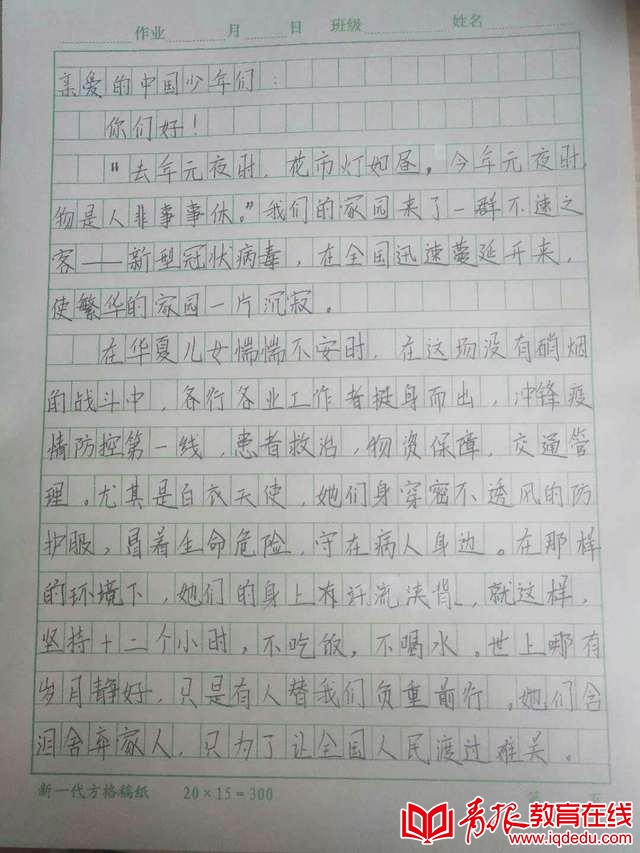 作业 月 日 班级 姓名
亲爱的中国少年们：
你们好！
“去年元夜时，花市灯如昼。今年元夜时，
物是人非事事休。”我们的家园来了一群不速之
客——新型冠状病毒，在全国迅速蔓延开来，
使繁华的家园一片沉寂。
在华夏儿女惴惴不安时，在这场没有硝烟
的战斗中，各行各业工作者挺身而出，冲锋疫
情防控第一线，患者救治，物资保障，交通管
理。尤其是白衣天使，她们身穿密不透风的防
护服，冒着生命危险，守在病人身边。在那样
的环境下，她们的身上有汗流浃背，就这样，
坚持十二个小时，不吃饭，不喝水。世上哪有
岁月静好，只是有人替我们负重前行。她们含
泪舍弃家人，只为了让全国人民渡过难关。
新一代方格稿纸 20×15=300 第 页
青报教育在线
www.iqdedu.com